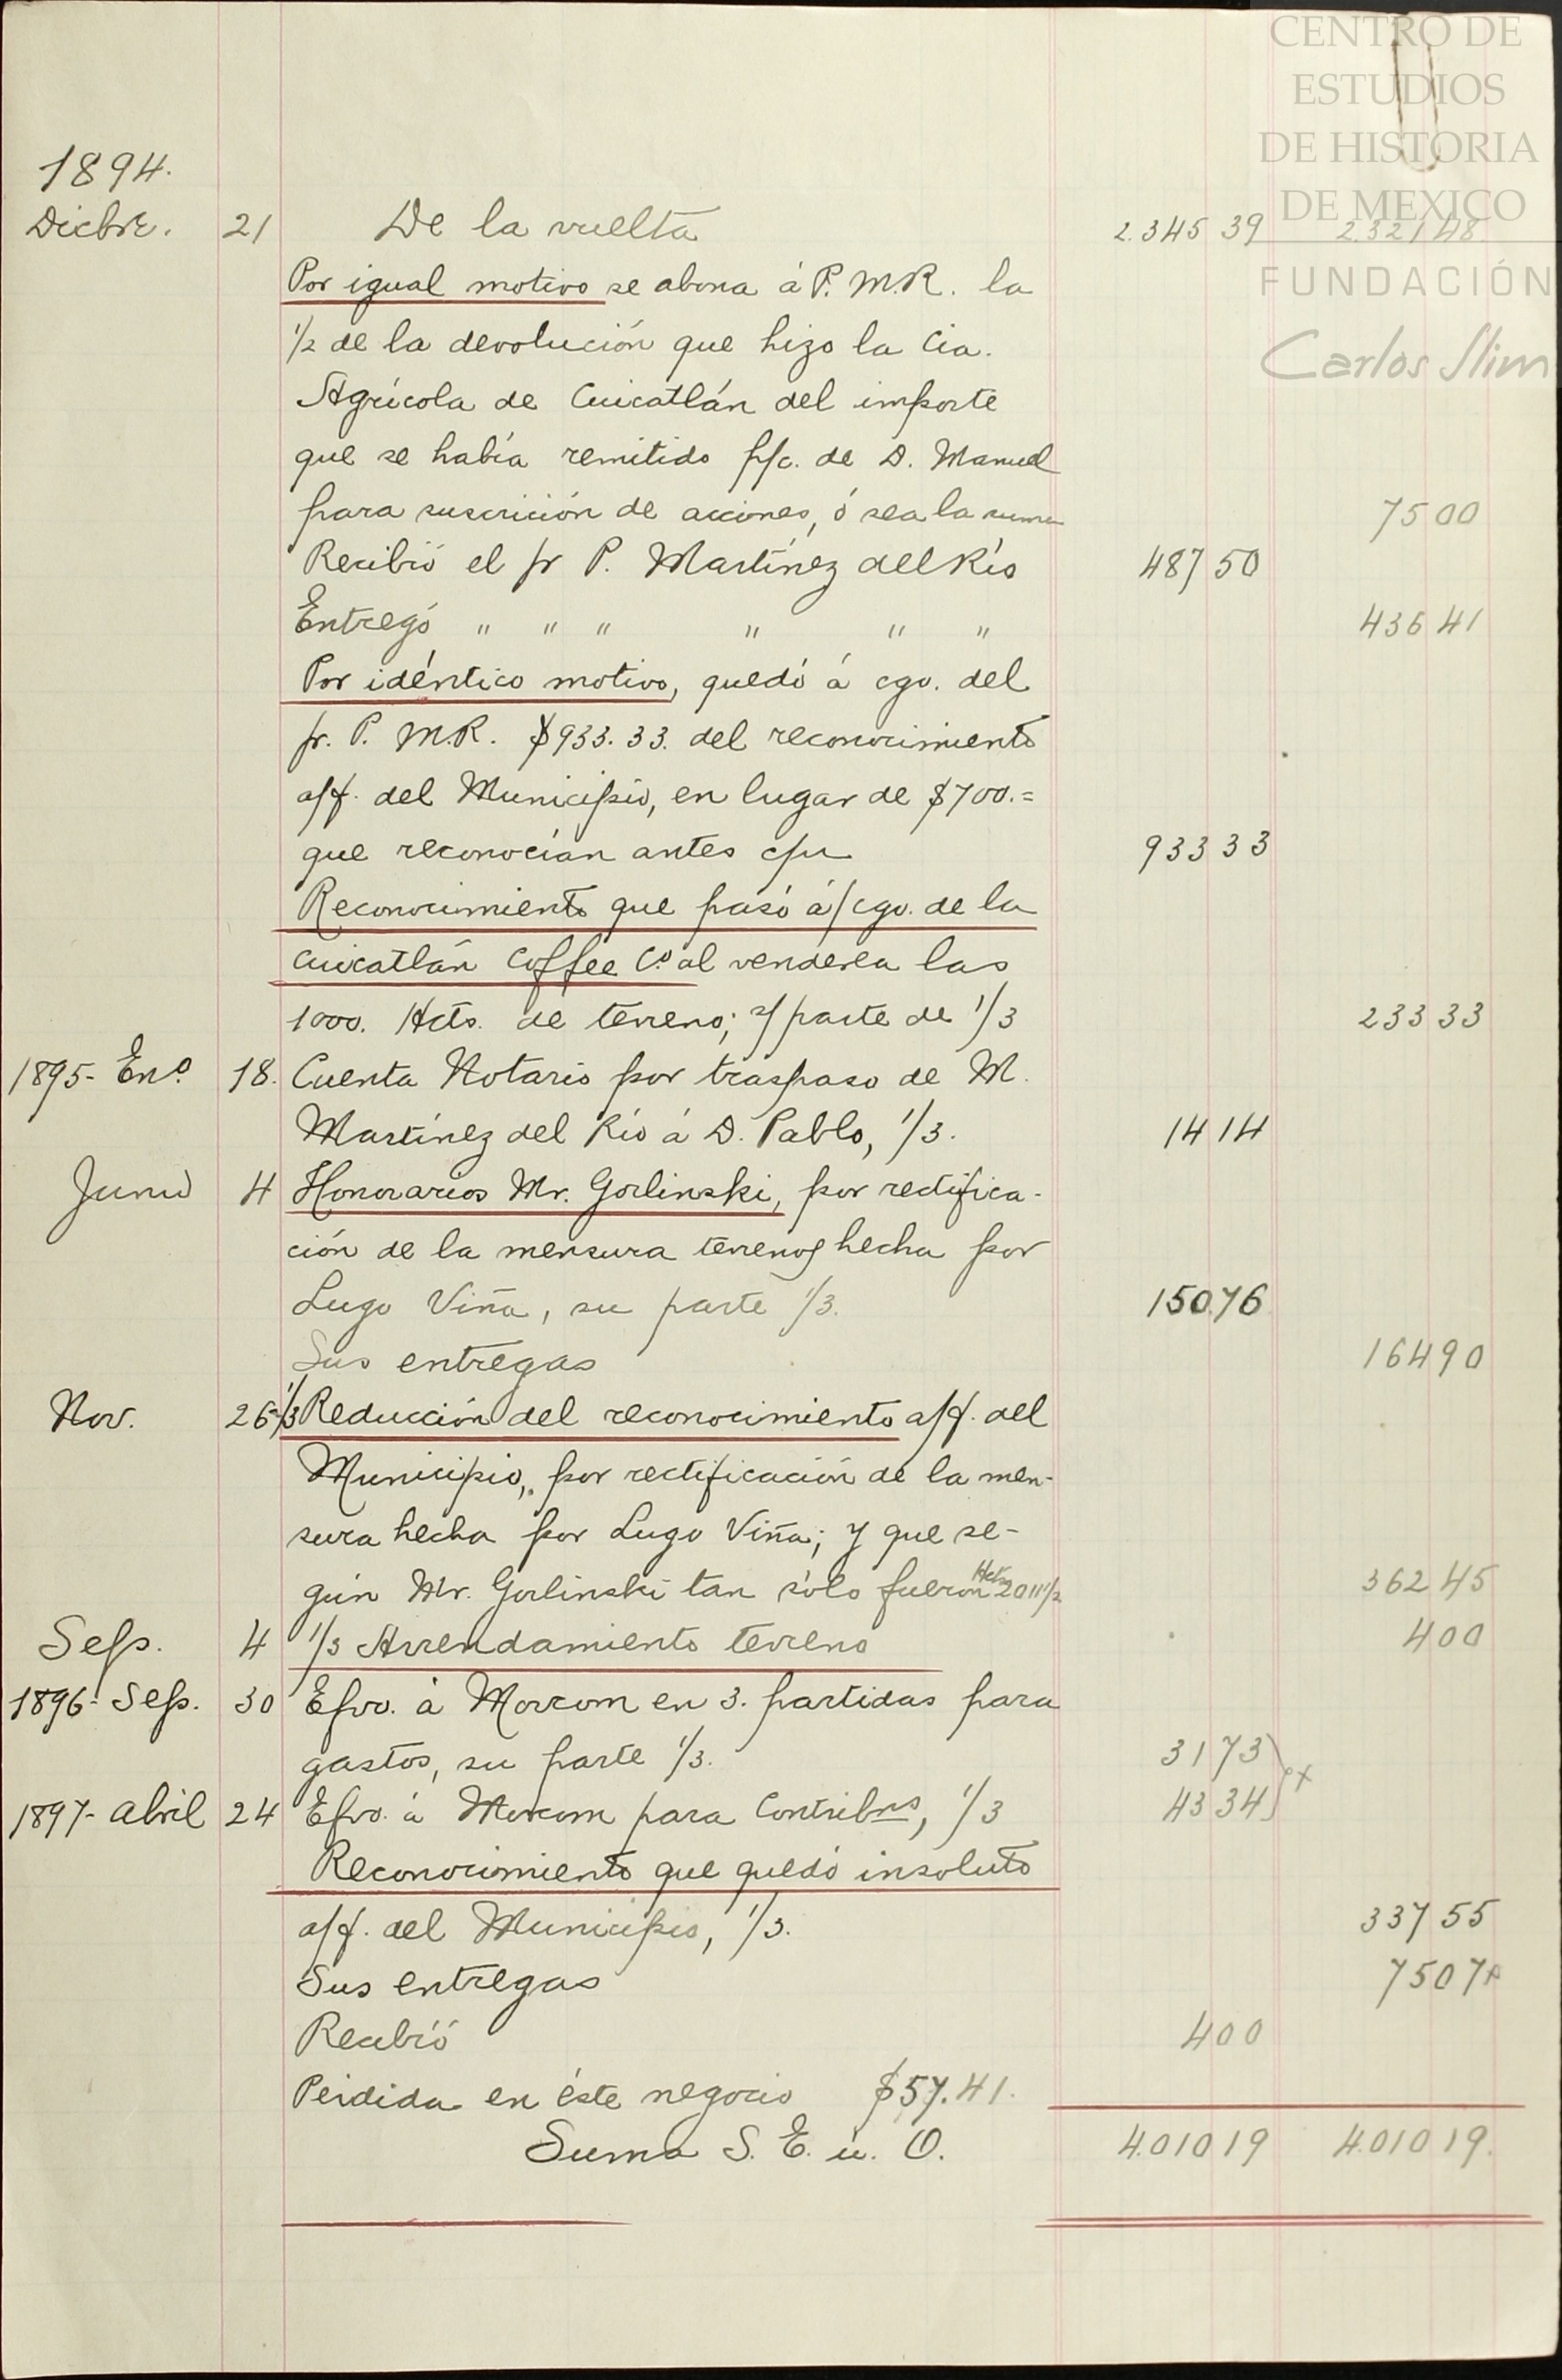 CENTRO DE
ESTUDIOS
DE HISTORIA
DE MEXICO
FUNDACIÓN
Carlos Slim
1894.
Dicbre. 21 De la vuelta 2.345 39 2.321 48
Por igual motivo se abona á P. M.R. la
1/2 de la devolución que hizo la Cia.
Agrícola de Cuicatlán del importe
que se había remitido p/c. de D. Manuel
para suscrición de acciones, ó sea la suma 75 00
Recibió el sr P. Martínez del Río 487 50
Entregó " " " " " " 436 41
Por idéntico motivo, quedó á cgo. del
sr. P. M.R. $933.33. del reconocimiento
a/f. del Municipio, en lugar de $700.=
que reconocían antes c/u 933 33
Reconocimiento que pasó á/cgo. de la
Cuicatlán Coffee Co al venderla las
1000. Hcts. de terreno; s/parte de 1/3 233 33
1895- Eno. 18. Cuenta Notario por traspaso de M.
Martínez del Río á D. Pablo, 1/3. 14 14
Junio 4 Honorarios Mr. Gorlinski, por rectifica-
ción de la mensura terrenos hecha por
Lugo Viña, su parte 1/3. 150.76
Sus entregas 164 90
Nov. 26- 1/3 Reducción del reconocimiento a/f. del
Municipio, por rectificación de la men-
sura hecha por Lugo Viña; y que se-
gún Mr. Gorlinski tan sólo fueron Hcts 2011 1/2 362 45
Sep. 4 1/3 Arrendamiento terreno 4 00
1896- Sep. 30 Efvo. á Morcom en 3. partidas para
gastos, su parte 1/3. 31 73
1897- Abril 24 Efvo. á Morcom para Contribns, 1/3 43 34
Reconocimiento que quedó insoluto
a/f. del Municipio, 1/3. 337 55
Sus entregas 75 07
Recibió 4 00
Perdida en éste negocio $57.41.
Suma S. E. ú. O. 4.010 19 4.010 19.